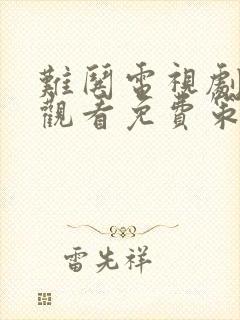 難閱電視劇
觀看免費第
雷先祥